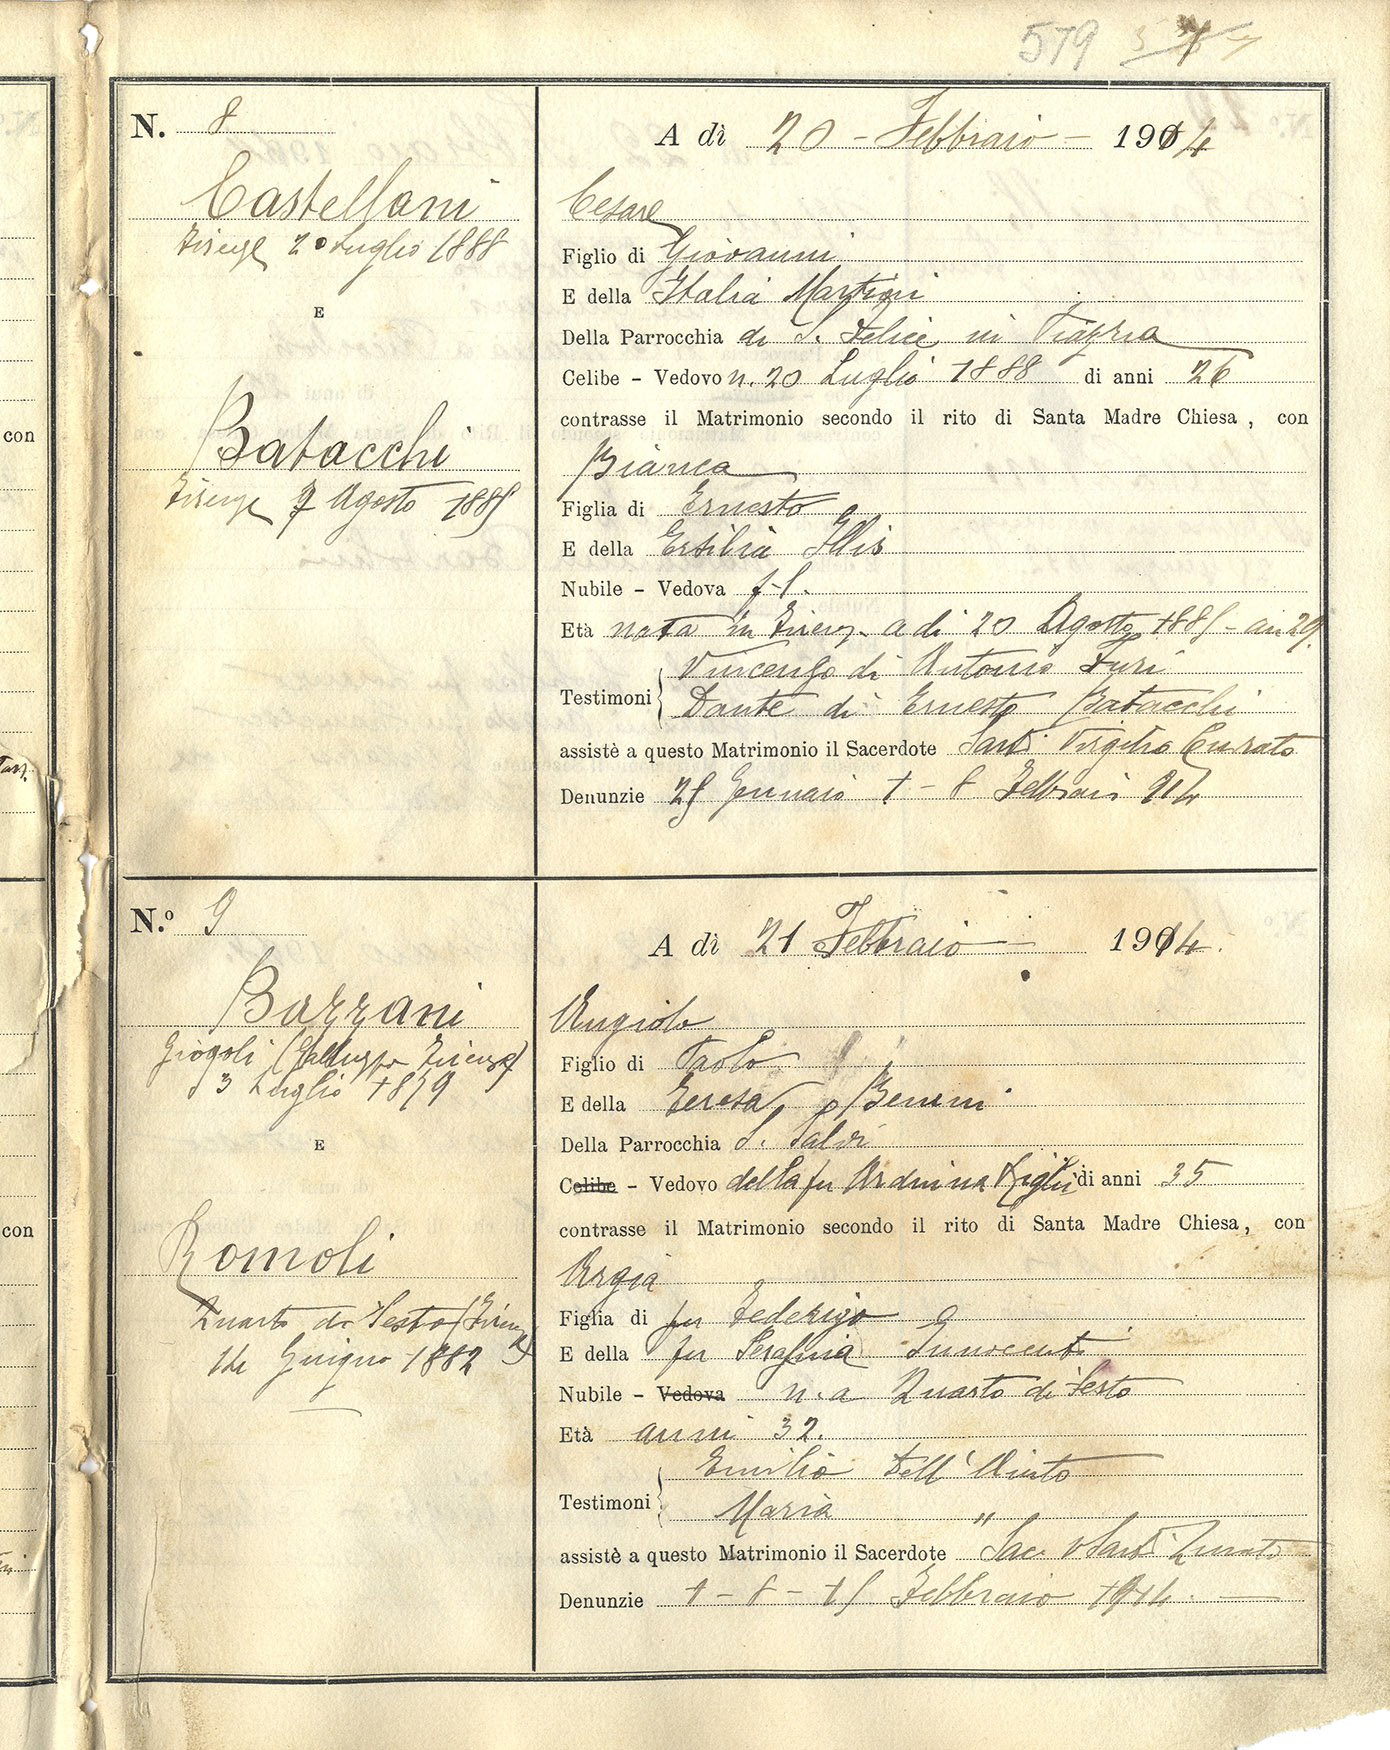 579
N. 8
Castellani
Firenze 20 Luglio 1888
E
Batacchi
Firenze 7 Agosto 1885
A dì 20 - Febbraio - 1914
Cesare
Figlio di Giovanni
E della Italia Martini
Della Parrocchia di S. Felice in Piazza
Celibe - Vedovo n. 20 Luglio 1888 di anni 26
contrasse il Matrimonio secondo il rito di Santa Madre Chiesa, con
Bianca
Figlia di Ernesto
E della Ersilia
Nubile - Vedova
Età nata in Firenze a di 20 Agosto 1885 - an 29.
Testimoni { Vincenzo di Antonio Furi
Dante di Ernesto Batacchi
assistè a questo Matrimonio il Sacerdote Sarti Virgilio Curato
Denunzie 25 Gennaio 1 - 8 Febbraio 914
con
N.º 9
Bazzani
Giogoli (Galluzzo Firenze)
3 Luglio 1879
E
Romoli
Quarto di Sesto (Firenze)
14 Giugno 1882
A dì 21 Febbraio 1914.
Angiolo
Figlio di Paolo
E della Teresa Benini
Della Parrocchia S. Salvi
Celibe - Vedovo della fu Arduina Righi di anni 35
contrasse il Matrimonio secondo il rito di Santa Madre Chiesa, con
Argia
Figlia di fu Federigo
E della fu Serafina Innocenti
Nubile - Vedova n. a Quarto di Sesto
Età anni 32.
Testimoni { Emilio Dell'
Maria "
assistè a questo Matrimonio il Sacerdote Sac. Sarti Curato
Denunzie 1 - 8 - 15 Febbraio 1914.
con